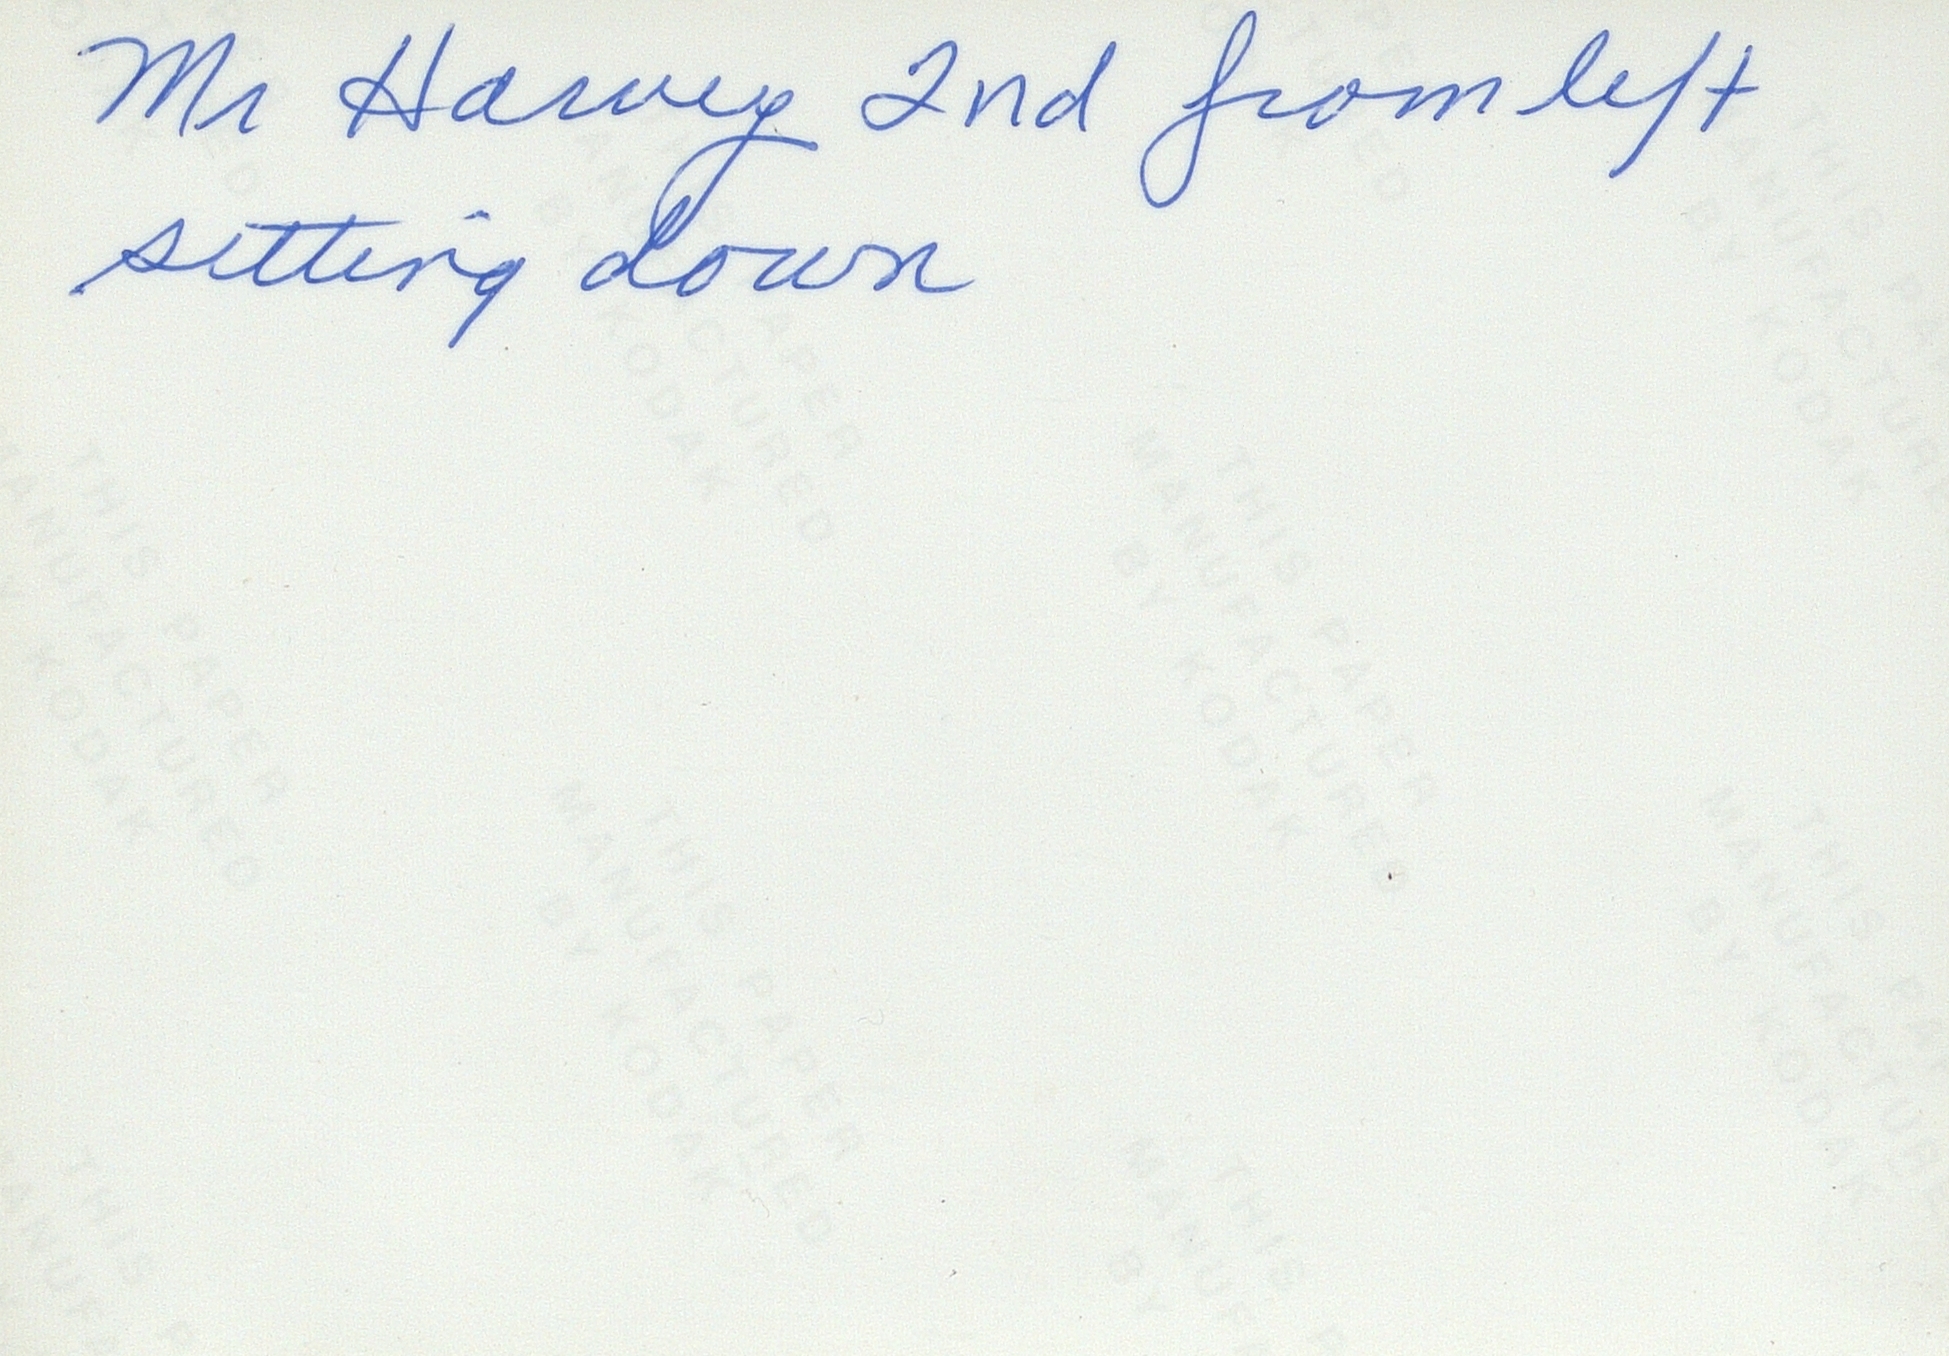 Mr Harvey 2nd from left
sitting down
THIS PAPER
MANUFACTURED
BY KODAK
THIS PAPER
MANUFACTURED
BY KODAK
THIS PAPER
MANUFACTURED
BY KODAK
THIS PAPER
MANUFACTURED
BY KODAK
THIS PAPER
MANUFACTURED
BY KODAK